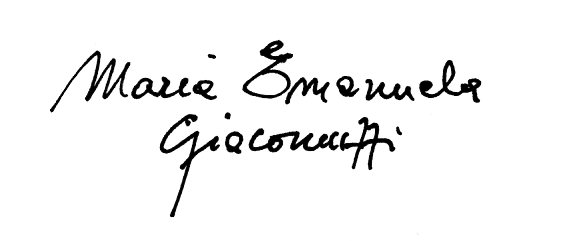 Maria Emanuela
Giacomuzzi